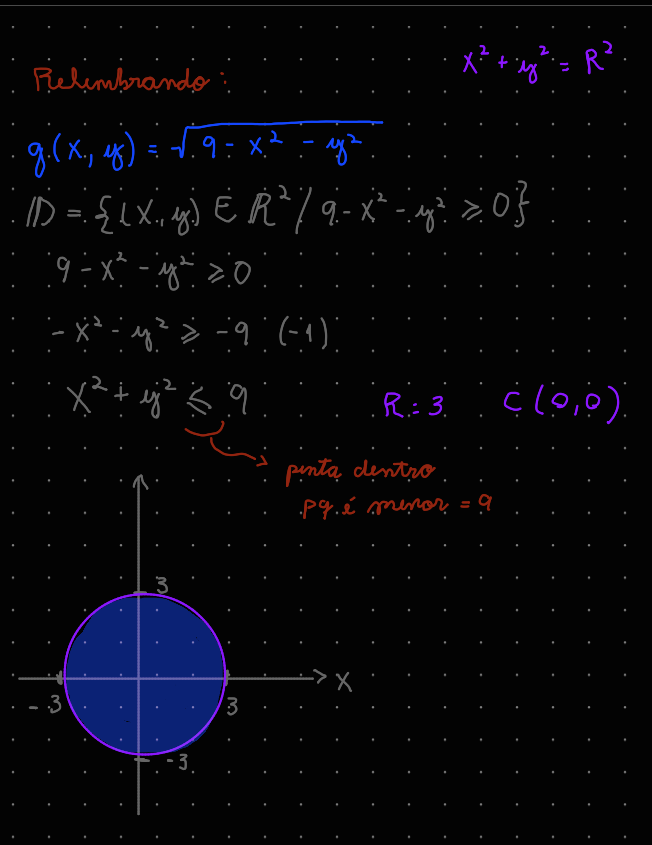 x² + y² = R²
Relembrando:
g(x, y) = √(9 - x² - y²)
D = {(x, y) ∈ R² / 9 - x² - y² ≥ 0}
9 - x² - y² ≥ 0
-x² - y² ≥ -9 (-1)
x² + y² ≤ 9 R = 3 C(0,0)
pinta dentro
pq é menor = 9
3
x
-3 3
-3